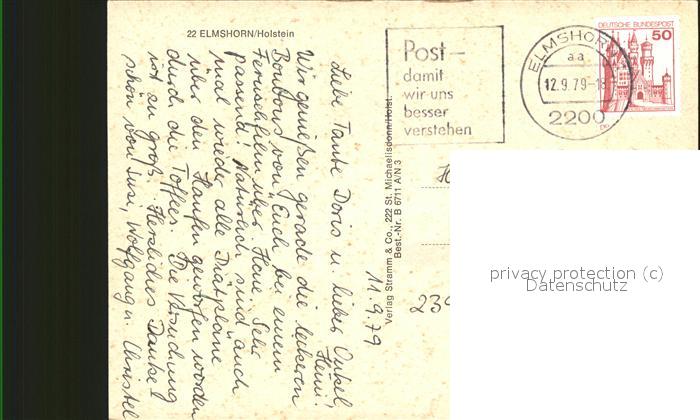 22 ELMSHORN/Holstein
Liebe Tante Doris u. lieber Onkel
Heini!
Wir genießen gerade die leckeren
Bonbons von Euch bei einem
Fernsehfilm über. Sehr
passend! Natürlich sind auch
mal wieder alle Diätpläne
über den Haufen geworfen worden
durch die Toffees. Die Versuchung
ist zu groß. Herzliches Danke-
schön von Susi, Wolfgang u. Christel
11.9.79
Verlag Stramm & Co., 222 St. Michaelisdonn/Holst.
Best.-Nr. B 6711 A/N 3
Post -
damit
wir uns
besser
verstehen
ELMSHORN
aa
12.9.79-18
2200
DEUTSCHE BUNDESPOST
50
privacy protection (c)
Datenschutz